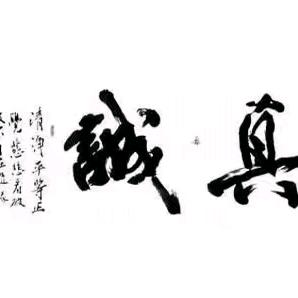 真誠
清淨平等正
覺慈悲看破